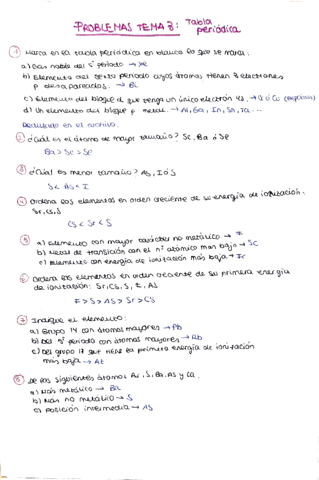 PROBLEMAS TEMA 8: Tabla periódica
1 Marca en la tabla periódica en blanco lo que se narra:
a) Gas noble del 5º periodo → Xe
b) Elemento del sexto periodo cuyos átomos tienen 3 electrones p desapareados. → Bi
c) Elemento del bloque d que tenga un único electrón 4s. → Cr ó Cu
d) Un elemento del bloque p metal. → Al, Ga, In, Sn, Tl...
Realizado en el archivo.
2 ¿Cuál es el átomo de mayor tamaño? Sc, Ba ó Se
Ba > Sc > Se
3 ¿Cuál es menor tamaño? As, I ó S
S < As < I
4 Ordena los elementos en orden creciente de su energía de ionización:
Sr, Cs, S
Cs < Sr < S
5 a) Elemento con mayor carácter no metálico → F
b) Metal de transición con el nº atómico más bajo → Sc
c) Elemento con energía de ionización más baja → Fr
6 Ordena los elementos en orden decreciente de su primera energía
de ionización: Sr, Cs, S, F, As
F > S > As > Sr > Cs
7 Indique el elemento:
a) Grupo 14 con átomos mayores → Pb
b) Del 5º periodo con átomos mayores → Rb
c) Del grupo 17 que tiene la primera energía de ionización
más baja → At
8 De los siguientes átomos S, Ba, As y Ca.
a) Más metálico → Ba
b) Más no metálico → S
c) Posición intermedia → As